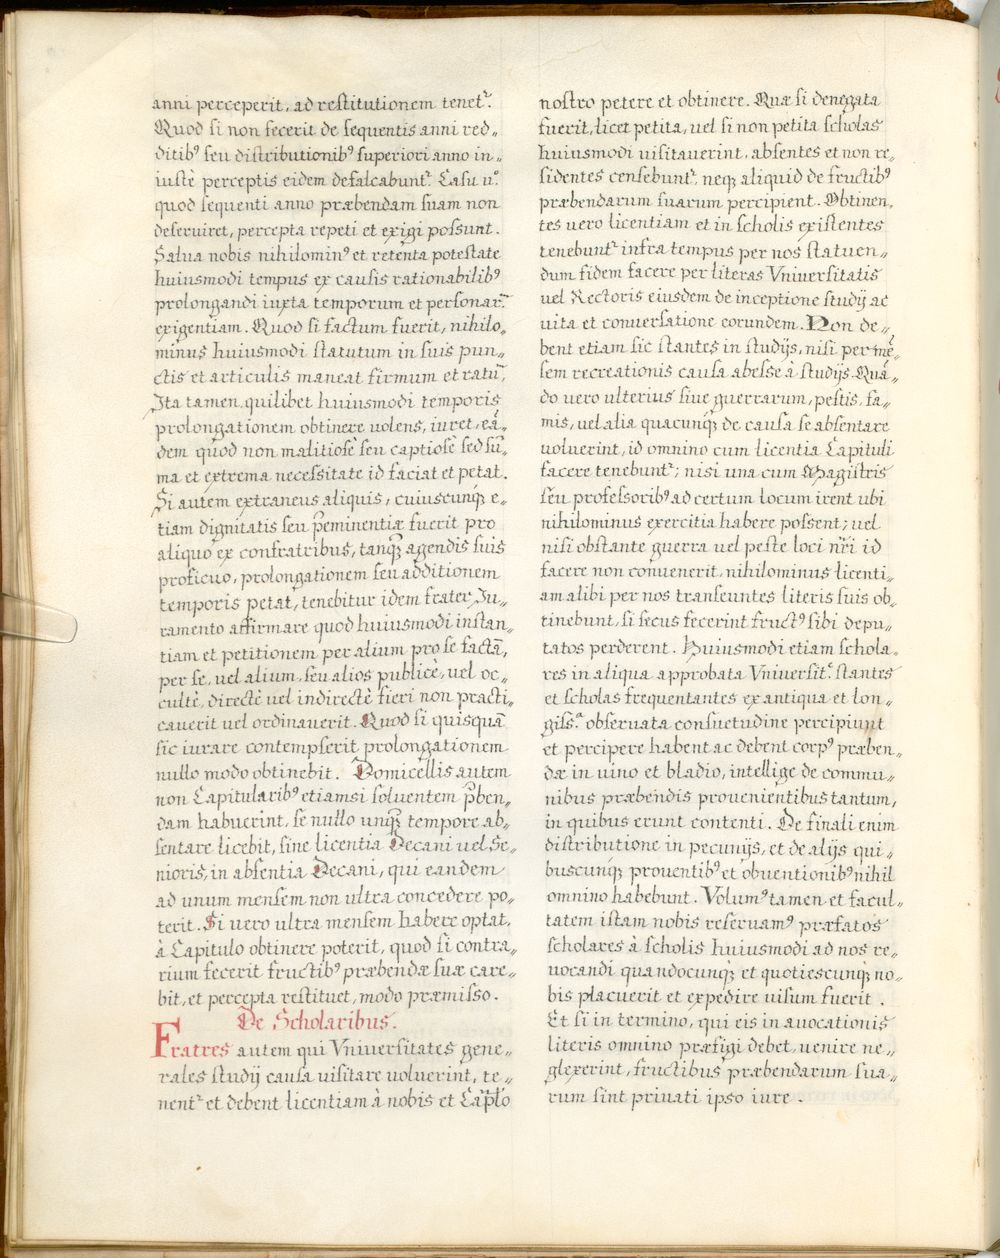 anni perceperit, ad restitutionem tenet᷑.
Quod si non fecerit de sequentis anni red„
ditibꝰ seu distributionibꝰ superiori anno in„
iustè perceptis eidem defalcabunt᷑. Casu u.º
quod sequenti anno præbendam suam non
deserviret, percepta repeti et exigi possunt.
Salua nobis nihilominꝰ et retenta potestate
huiusmodi tempus ex causis rationabilibꝰ
prolongandi iuxta temporum et personar᷑
exigentiam. Quod si factum fuerit, nihilo„
minus huiusmodi statutum in suis pun„
ctis et articulis maneat firmum et ratū,
Ita tamen, quilibet huiusmodi temporis
prolongationem obtinere uolens, iuret, eā„
dem quod non malitiosè seu captiosè sed sū„
ma et extrema necessitate id faciat et petat.
Si autem extraneus aliquis, cuiuscunqꝫ e„
tiam dignitatis seu p̄eminentiæ fuerit pro
aliquo ex confratribus, tanqꝫ agendis suis
proficuo, prolongationem seu additionem
temporis petat, tenebitur idem frater Iu„
ramento affirmare quod huiusmodi instan„
tiam et petitionem per alium pro se factā,
per se, uel alium, seu alios publicè, uel oc„
cultè, directè uel indirectè fieri non practi„
cauerit uel ordinauerit. Quod si quisquā
sic iurare contempserit prolongationem
nullo modo obtinebit. Domicellis autem
non Capitularibꝰ etiamsi soluentem p̄ben„
dam habuerint, se nullo unqꝫ tempore ab„
sentare licebit, sine licentia Decani uel Se„
nioris, in absentia Decani, qui eandem
ad unum mensem non ultra concedere po„
terit. Si uero ultra mensem habere optat,
à Capitulo obtinere poterit, quod si contra„
rium fecerit fructibꝰ præbendæ suæ care„
bit, et percepta restituet, modo præmisso.
De Scholaribus.
Fratres autem qui Vniuersitates gene„
rales studij causa uisitare uoluerint, te„
nent᷑ et debent licentiam à nobis et Cap̄lo
nostro petere et obtinere. Quæ si denegata
fuerit, licet petita, uel si non petita scholas
huiusmodi uisitauerint, absentes et non re„
sidentes censebunt᷑, neqꝫ aliquid de fructibꝰ
præbendarum suarum percipient. Obtinen„
tes uero licentiam et in scholis existentes
tenebunt᷑ infra tempus per nos statuen„
dum fidem facere per literas Vniuersitatis
uel Rectoris eiusdem de inceptione studij ac
uita et conuersatione eorundem. Non de„
bent etiam sic stantes in studijs, nisi per mē„
sem recreationis causa abesse à studijs. Quā„
do uero ulterius siue guerrarum, pestis, fa„
mis, uel alia quacunqꝫ de causa se absentare
uoluerint, id omnino cum licentia Capituli
facere tenebunt᷑; nisi una cum Magistris
seu professoribꝰ ad certum locum irent ubi
nihilominus exercitia habere possent; uel
nisi obstante guerra uel peste loci nr̄i id
facere non conuenerit, nihilominus licenti„
am alibi per nos transeuntes literis suis ob„
tinebunt, si secus fecerint fructꝰ sibi depu„
tatos perderent. Huiusmodi etiam schola„
res in aliqua approbata Vniuersit.ᵉ stantes
et scholas frequentantes ex antiqua et lon„
giss.ᵃ obseruata consuetudine percipiunt
et percipere habent ac debent corpꝰ præben„
dæ in uino et bladio, intellige de commu„
nibus præbendis prouenientibus tantum,
in quibus erunt contenti. De finali enim
distributione in pecunijs, et de alijs qui„
buscunqꝫ prouentibꝰ et obuentionibꝰ nihil
omnino habebunt. Volumꝰ tamen et facul„
tatem istam nobis reseruamꝰ præfatos
scholares à scholis huiusmodi ad nos re„
uocandi quandocunqꝫ et quotiescunqꝫ no„
bis placuerit et expedire uisum fuerit.
Et si in termino, qui eis in auocationis
literis omnino præfigi debet, uenire ne„
glexerint, fructibus præbendarum sua„
rum sint priuati ipso iure.